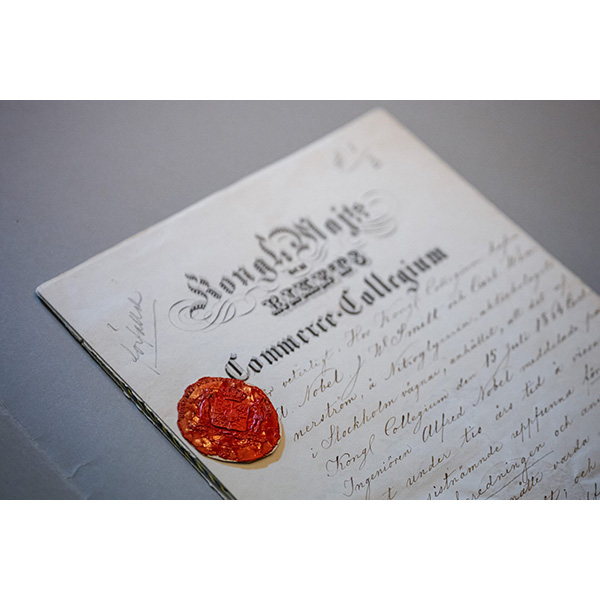 Kongl. Maj:ts
och
RIKETS
Commerce-Collegium
Gör veterligt, Hos Kongl Collegium hafva
Nobel J W Smitt och Carl Wen
nerström, i Nitroglycerin-aktiebolaget
i Stockholm vägnar, anhållit, att det af
Kongl Collegium den 15 Juli 1864
Ingeniören Alfred Nobel meddelade pa
under tio års tid å vissa
sistnämnde uppfunna för
beredningen och an
måtte varda